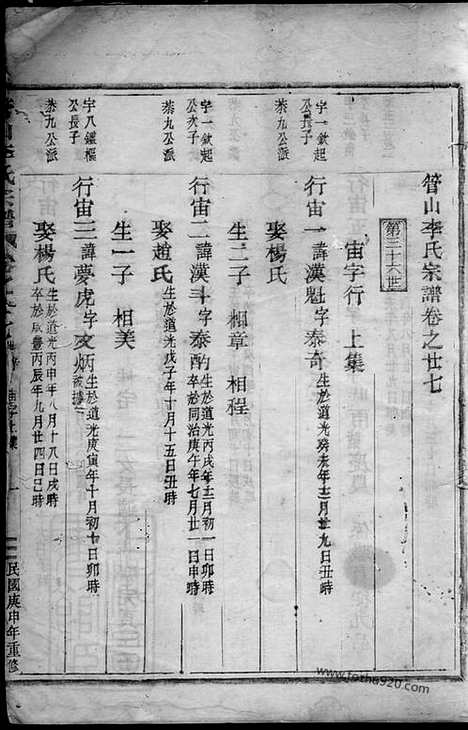 管山李氏宗譜卷之廿七
第三十六世
宙字行 上集
字一欽起
公長子
恭九公派
行宙一 諱漢魁 字泰奇 生於道光癸未年十二月廿九日丑時
娶楊氏
生二子 相章 相程
字一欽起
公次子
恭九公派
行宙二 諱漢斗 字泰酌 生於道光丙戌年十二月初一日卯時
卒於同治庚午年七月廿一日申時
娶趙氏 生於道光戊子年十月十五日丑時
生一子 相美
字八鑑樞
公長子
行宙三 諱夢虎 字文炳 被擄 生於道光庚寅年十月初十日卯時
娶楊氏 生於道光丙申年八月十八日戌時
卒於咸豐丙辰年九月廿四日巳時
李氏宗譜
民國庚申年重修
www.fozhu920.com